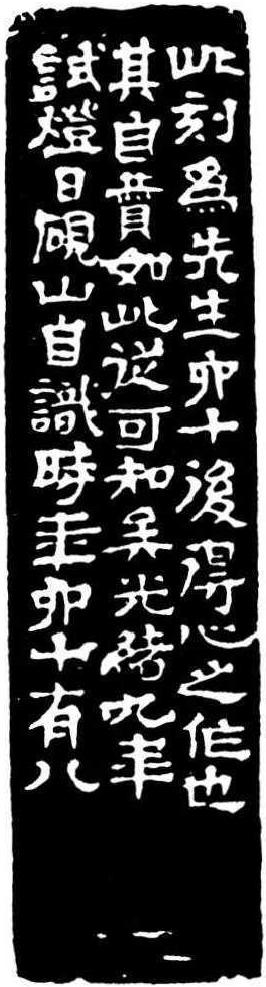 此刻為先生卯十後得心之作也
其自貴如此從可知矣光緒九年
試燈日硯山自識時卯十有八